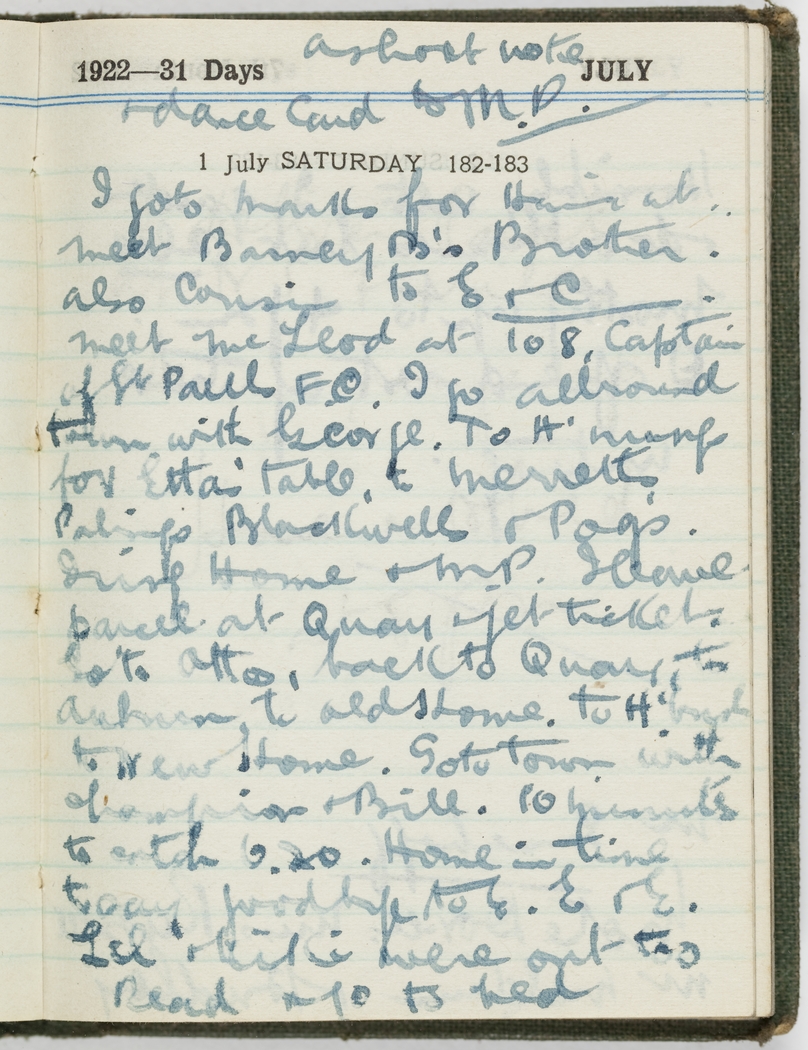 a short note
1922—31 Days JULY
+ dance Card to M.P.
1 July SATURDAY 182-183
I go to Marks for Hair at.
meet Barney B's Brother.
also Cousin to E + C.
meet McLeod at 108, Captain
of St Pauls F.C. I go all round
Town with George. To H'
for Etta's table, to Merretts,
Palings Blackwells + Pags.
Ring Home + M.P. I leave
parcel at Quay + get ticket.
Go to Otto, back to Quay, to
to old Home. to H'
to New Home. Go to town with
champion + Bill. 10 minutes
to catch 6.20. Home in time
to say goodbye to E. E + E.
Lil + were out to
Read + go to bed